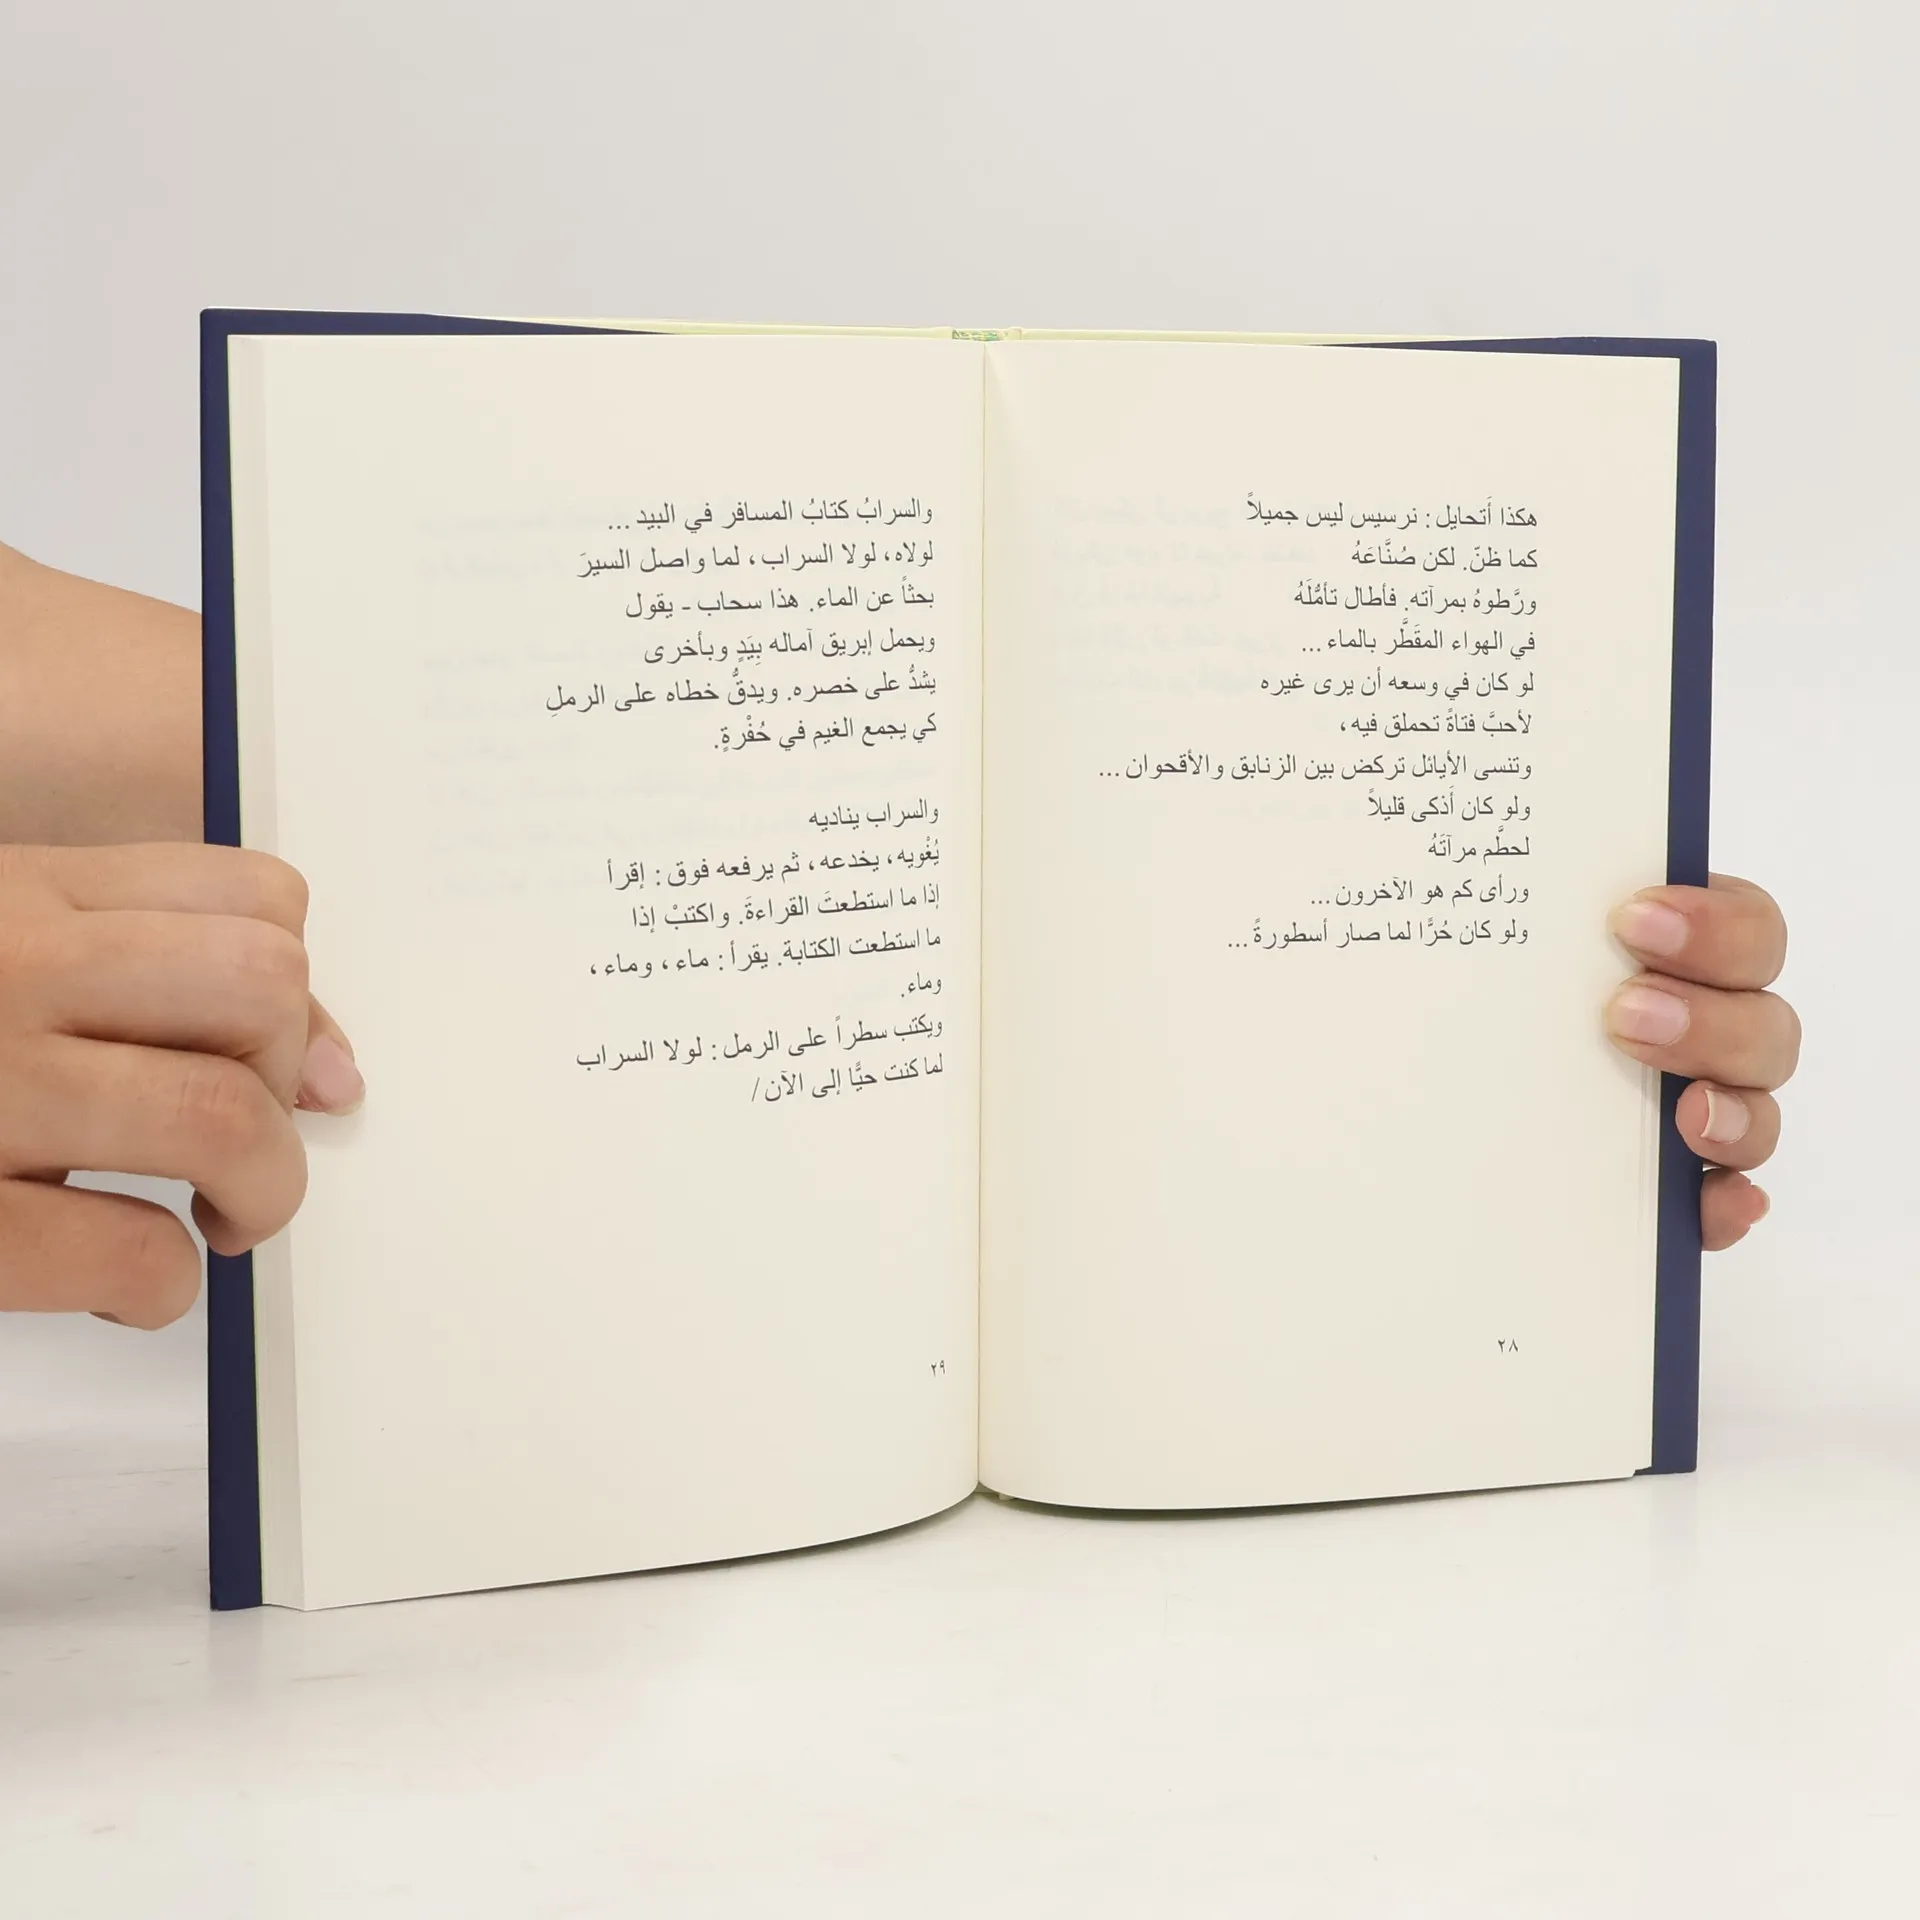 هكذا أَتحايل: نرسيس ليس جميلاً
كما ظنّ. لكن صُنَّاعَهُ
ورَّطوهُ بمرآته. فأطال تأمُّلَهُ
في الهواء المقَطَّر بالماء ...
لو كان في وسعه أن يرى غيره
لأحبَّ فتاةً تحملق فيه،
وتنسى الأيائل تركض بين الزنابق والأقحوان ...
ولو كان أَذكى قليلاً
لحطَّم مرآتَهُ
ورأى كم هو الآخرون ...
ولو كان حُرًّا لما صار أسطورةً ...
٢٨
والسرابُ كتابُ المسافر في البيد ...
لولاه، لولا السراب، لما واصل السيرَ
بحثاً عن الماء. هذا سحاب - يقول
ويحمل إبريق آماله بِيَدٍ وبأخرى
يشدُّ على خصره. ويدقُّ خطاه على الرملِ
كي يجمع الغيم في حُفْرةٍ.
والسراب يناديه
يُغْويه، يخدعه، ثم يرفعه فوق: إقرأ
إذا ما استطعتَ القراءةَ. واكتبْ إذا
ما استطعت الكتابة. يقرأ: ماء، وماء،
وماء.
ويكتب سطراً على الرمل: لولا السراب
لما كنت حيًّا إلى الآن /
٢٩